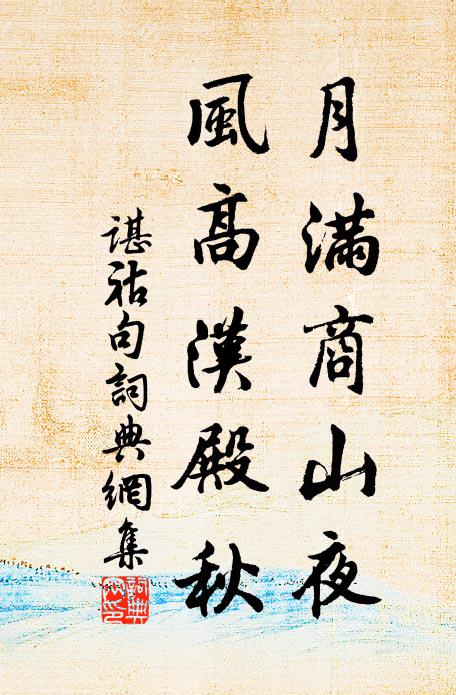 月滿商山夜
風高漢殿秋
諶祜句詞典網集